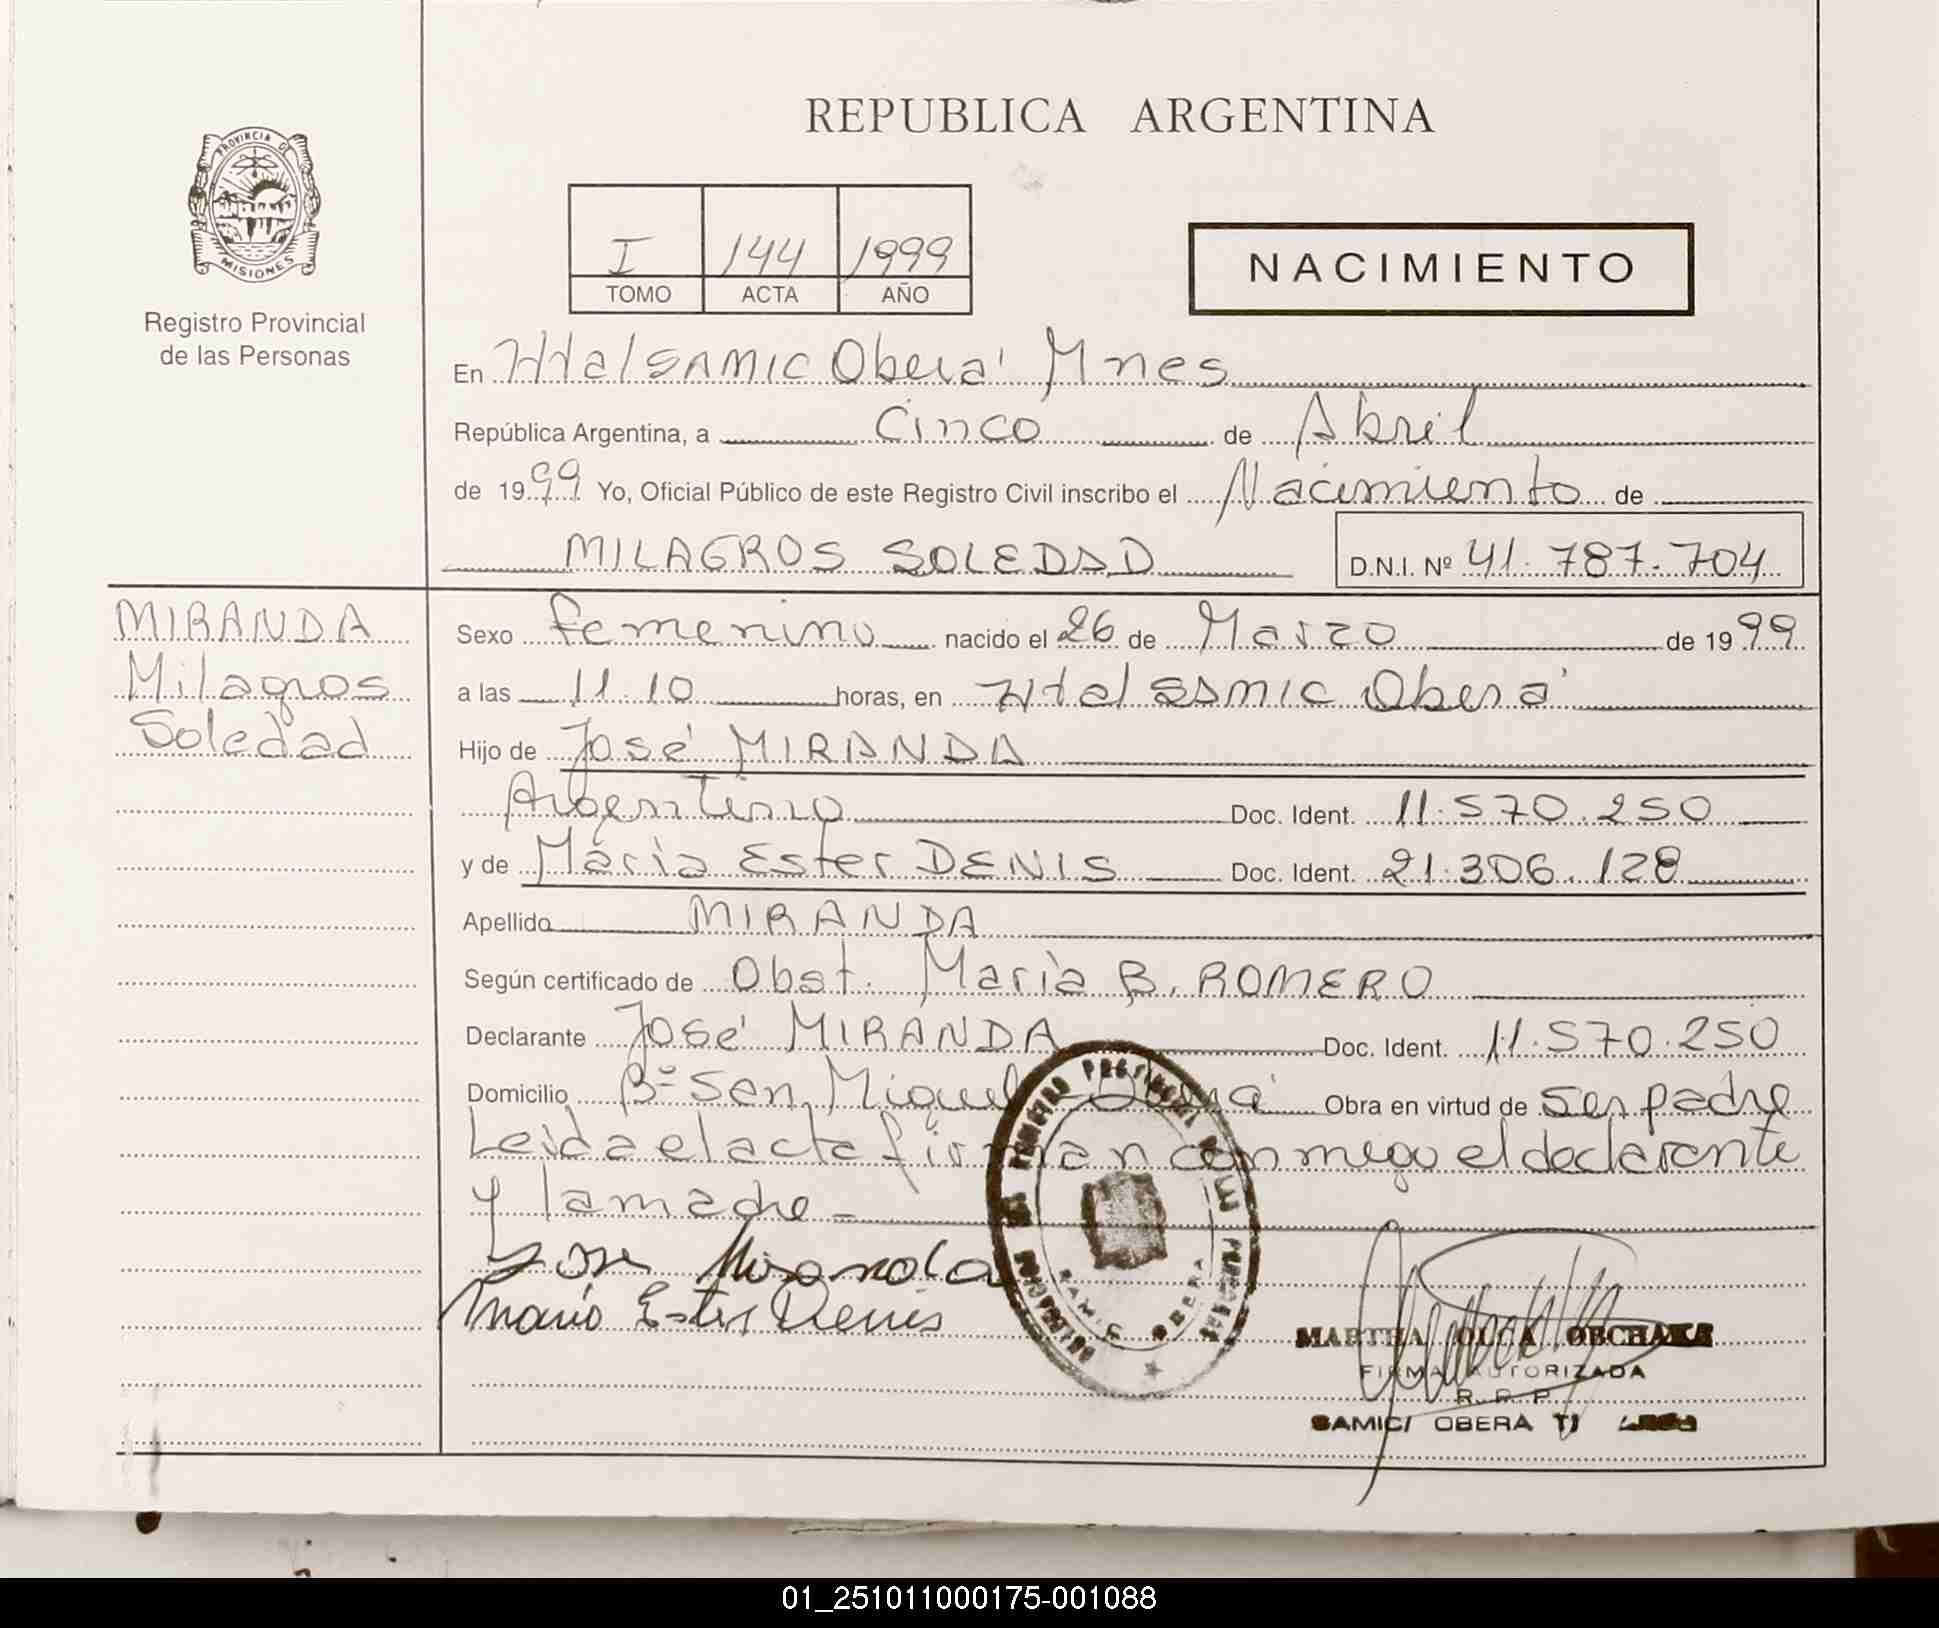 REPUBLICA ARGENTINA
PROVINCIA DE
MISIONES
Registro Provincial
de las Personas
I 144 1999
TOMO ACTA AÑO
NACIMIENTO
En Htal SAMIC Oberá Mnes
República Argentina, a Cinco de Abril
de 1999 Yo, Oficial Público de este Registro Civil inscribo el Nacimiento de
MILAGROS SOLEDAD D.N.I. Nº 41.787.704
MIRANDA
Milagros
Soledad
Sexo femenino nacido el 26 de Marzo de 1999
a las 11.10 horas, en Htal SAMIC Oberá
Hijo de José MIRANDA
Argentino Doc. Ident. 11.570.250
y de María Ester DENIS Doc. Ident. 21.306.128
Apellido MIRANDA
Según certificado de Obst. María B. ROMERO
Declarante José MIRANDA Doc. Ident. 11.570.250
Domicilio Bº San Miguel - Oberá Obra en virtud de ser padre
Leida el acta firman conmigo el declarante
y la madre -
Jose Miranda
Maria Ester Denis
SAMIC OBERA
MARTHA OLGA
FIRMA AUTORIZADA
R. P. P.
SAMIC/ OBERA
01_251011000175-001088